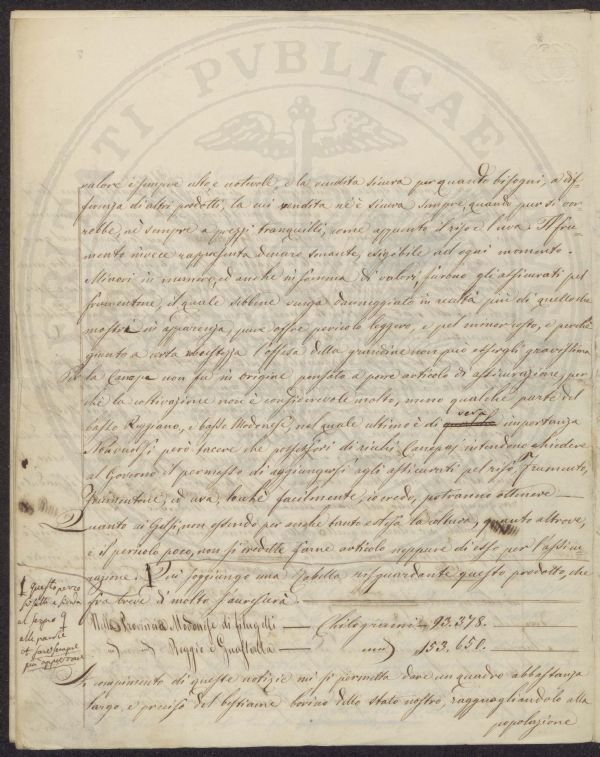 ATI PVBLICAE
valore è sempre alto, e notevole, e la vendita sicura per quanto bisogni, a dif-
ferenza di altri prodotti, la cui vendita nè è sicura sempre quando pur si vor-
rebbe, nè sempre a prezzi tranquilli, come appunto il riso e l'uva. Il fru-
mento invece rappresenta denaro sonante, esigibile ad ogni momento.
Minori in numero, ed anche in somma di valori, furono gli assicurati pel
frumentone, il quale sibbene venga danneggiato in realtà più di quello che
mostri in apparenza, pure offre pericolo leggero, e pel minor costo, e perchè
giunto a certa robustezza l'offesa della grandine non può essergli gravissima
Per la Canapa non fu in origine pensato a porre articolo di assicurazione, per
chè la coltivazione non è considerevole molto, meno qualche parte del
basso Reggiano, e basso Modonese, nel quale ultimo è di vera importanza
Non vuolsi però tacere che possessori di ricchi Canapaj intendono chiedere
al Governo il permesso di aggiungersi agli assicurati pel riso, Frumento,
Frumentone, ed uva, locchè facilmente, io credo, potranno ottenere
Quanto ai Gelsi, non essendo per anche tanto estesa la coltura, quanto altrove,
e il pericolo poco, non si credette farne articolo neppure di essi per l'assicu-
razione. Qui soggiungo una Tabella risguardante questo prodotto, che
fra breve di molto s'accrescerà.
questo pezzo
al segno
alle parole
Nella Provincia Modonese di filugelli — Chilogrami 93.378.
Reggio e Guastalla — 153.650.
A compimento di queste notizie mi si permetta dare un quadro abbastanza
largo, e preciso del bestiame bovino dello stato nostro, ragguagliandolo alla
popolazione